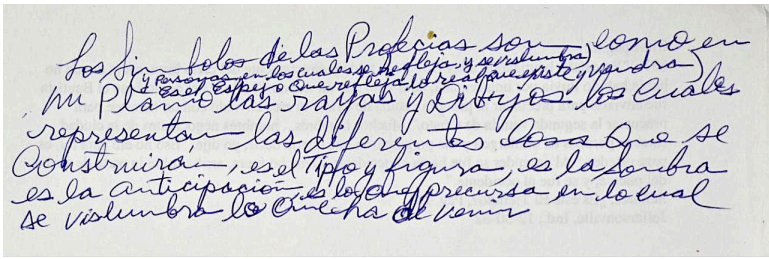 Los Simbolos de las Profecias son como en
y Personas en los cuales se refleja, y se vislumbra)
Es el Espejo Que refleja lo real que existe y vendra)
un Plano las rayas y Dibujos los cuales
representan las diferentes cosas que se
Construirán, es el Tipo y figura, es la Sombra
es la anticipación, es lo que precursa en lo cual
se vislumbra lo que ha de venir
Jeffersonville, Ind.